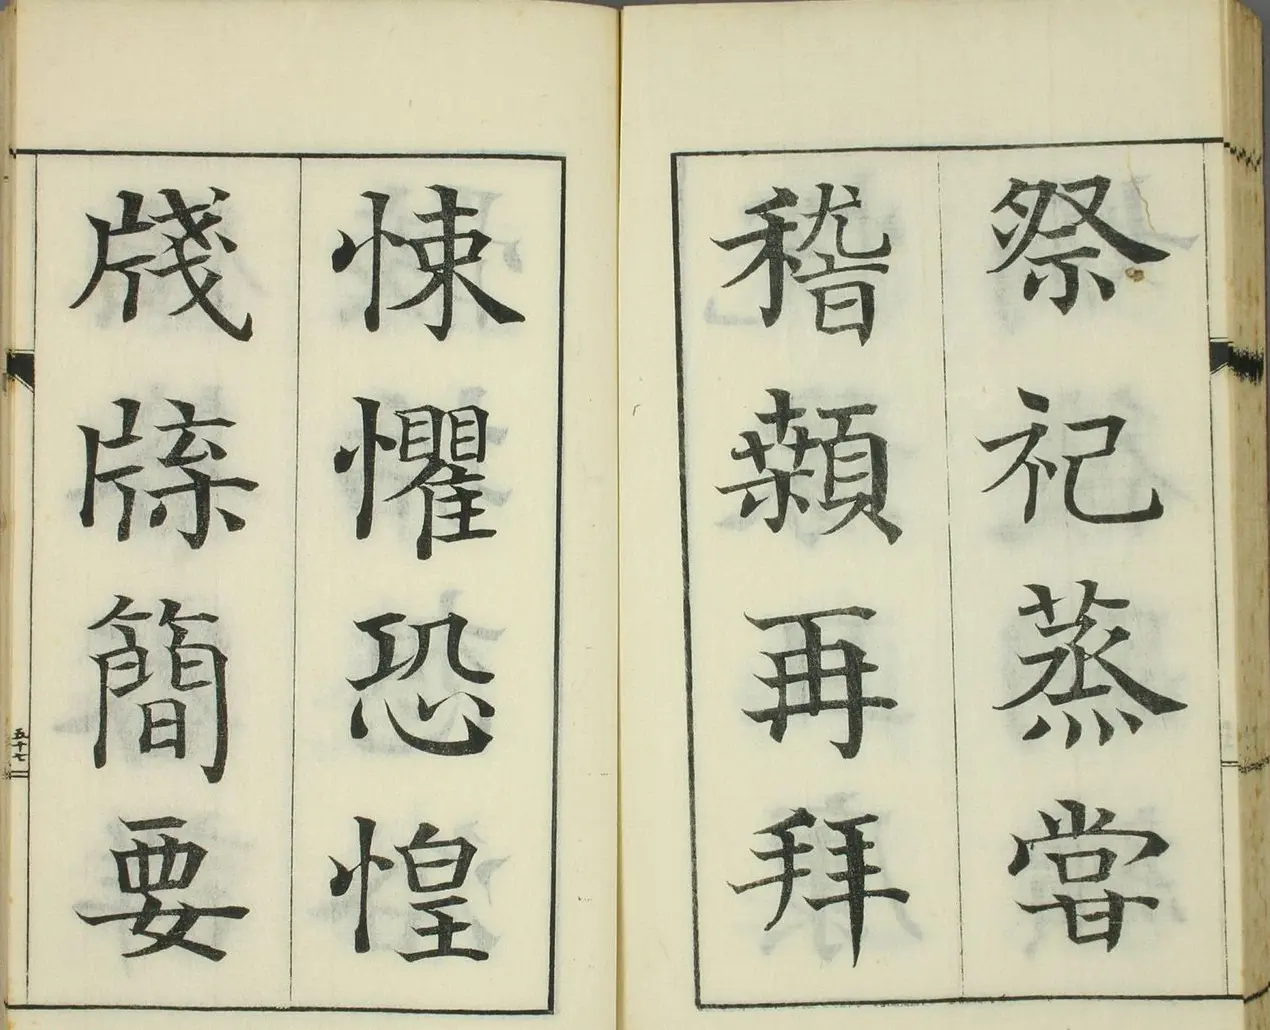 祭祀蒸甞
稽顙再拜
悚懼恐惶
牋牒簡要
五十七